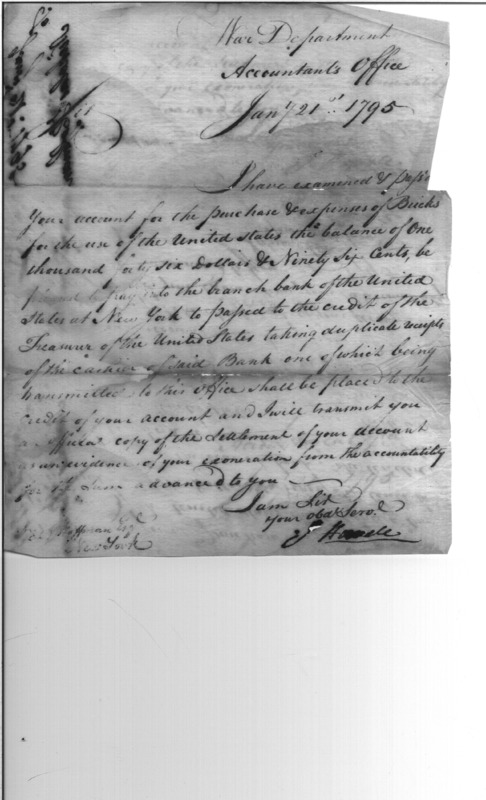 War Department
Accountants Office
Jany 21st 1795
I have examined & pass'd
Your account for the purchase & expenses of Bricks
for the use of the United States the balance of One
thousand forty six Dollars & Ninety Six Cents, be
pleased to pay into the branch bank of the United
States at New York to passed to the credit of the
Treasurer of the United States taking duplicate receipts
of the cashier of said Bank one of which being
transmitted to this office shall be placed to the
Credit of your account and I will transmit you
a official copy of the Settlement of your account
as an evidence of your exoneration from the accountability
for the Sum advanced to you
I am Sir
your obdt Servt
J Howell
Hoffman Esqr
New York